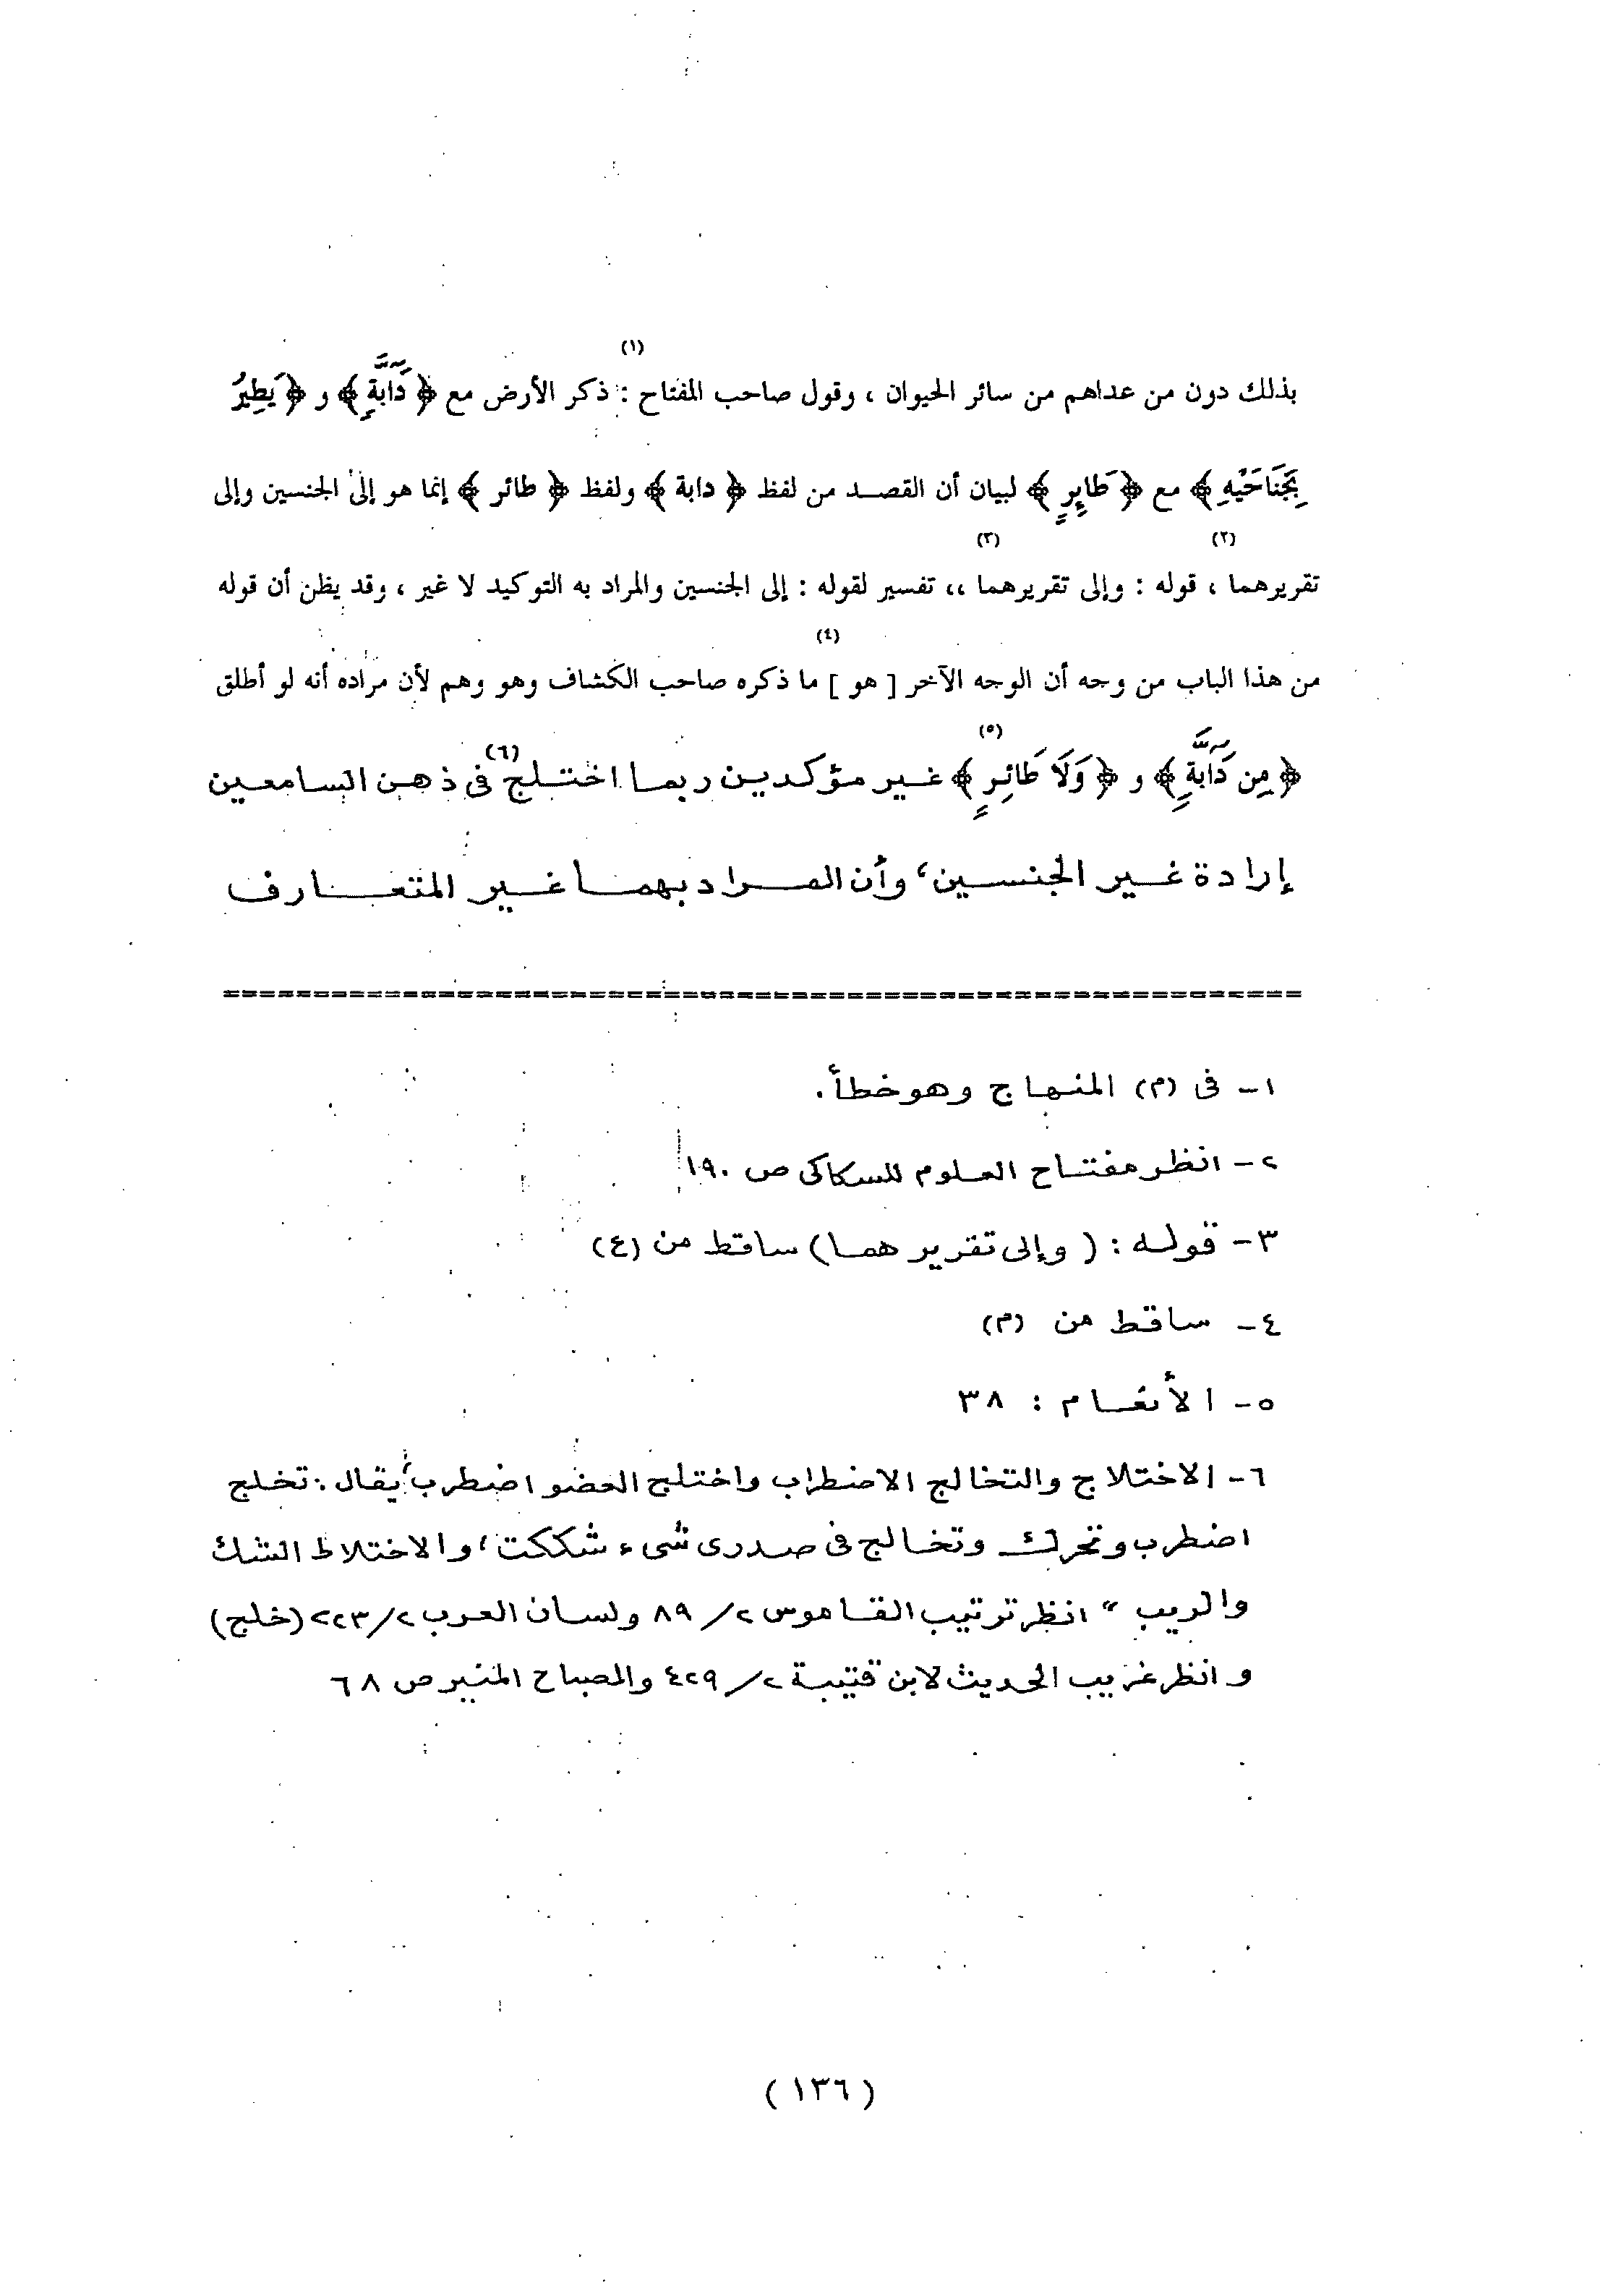 بذلك دون من عداهم من سائر الحيوان ، وقول صاحب المفتاح (١) : ذكر الأرض مع ﴿ دَآبَّةٍ ﴾ و ﴿ يَطِيرُ
بِجَنَاحَيْهِ ﴾ مع ﴿ طَائِرٍ ﴾ لبيان أن القصد من لفظ ﴿ دابة ﴾ ولفظ ﴿ طائر ﴾ إنما هو إلى الجنسين وإلى
تقريرهما (٢) ، قوله : وإلى تقريرهما (٣) ،، تفسير لقوله : إلى الجنسين والمراد به التوكيد لا غير ، وقد يظن أن قوله
من هذا الباب من وجه أن الوجه الآخر [ هو ] (٤) ما ذكره صاحب الكشاف وهو وهم لأن مراده أنه لو أطلق
﴿ مِن دَآبَّةٍ ﴾ و ﴿ وَلَا طَائِرٍ ﴾ (٥) غير مؤكدين ربما اختلج (٦) فى ذهن السامعين
إرادة غير الجنسين، وأن المراد بهما غير المتعارف
١- فى (م) المنهاج وهو خطأ.
٢- انظر مفتاح العلوم للسكاكى ص ١٩٠
٣- قوله : ( وإلى تقريرهما ) ساقط من (ع)
٤- ساقط من (م)
٥- الأنعام : ٣٨
٦- الاختلاج والتخالج الاضطراب واختلج العضو اضطرب، يقال : تخلج
اضطرب وتحرك وتخالج فى صدرى شىء شككت، والاختلاط الشك
والريب " انظر ترتيب القاموس ٢/ ٨٩ ولسان العرب ٢/ ٢٢٣ (خلج)
وانظر غريب الحديث لابن قتيبة ٢/ ٤٢٩ والمصباح المنير ص ٦٨
( ١٣٦ )